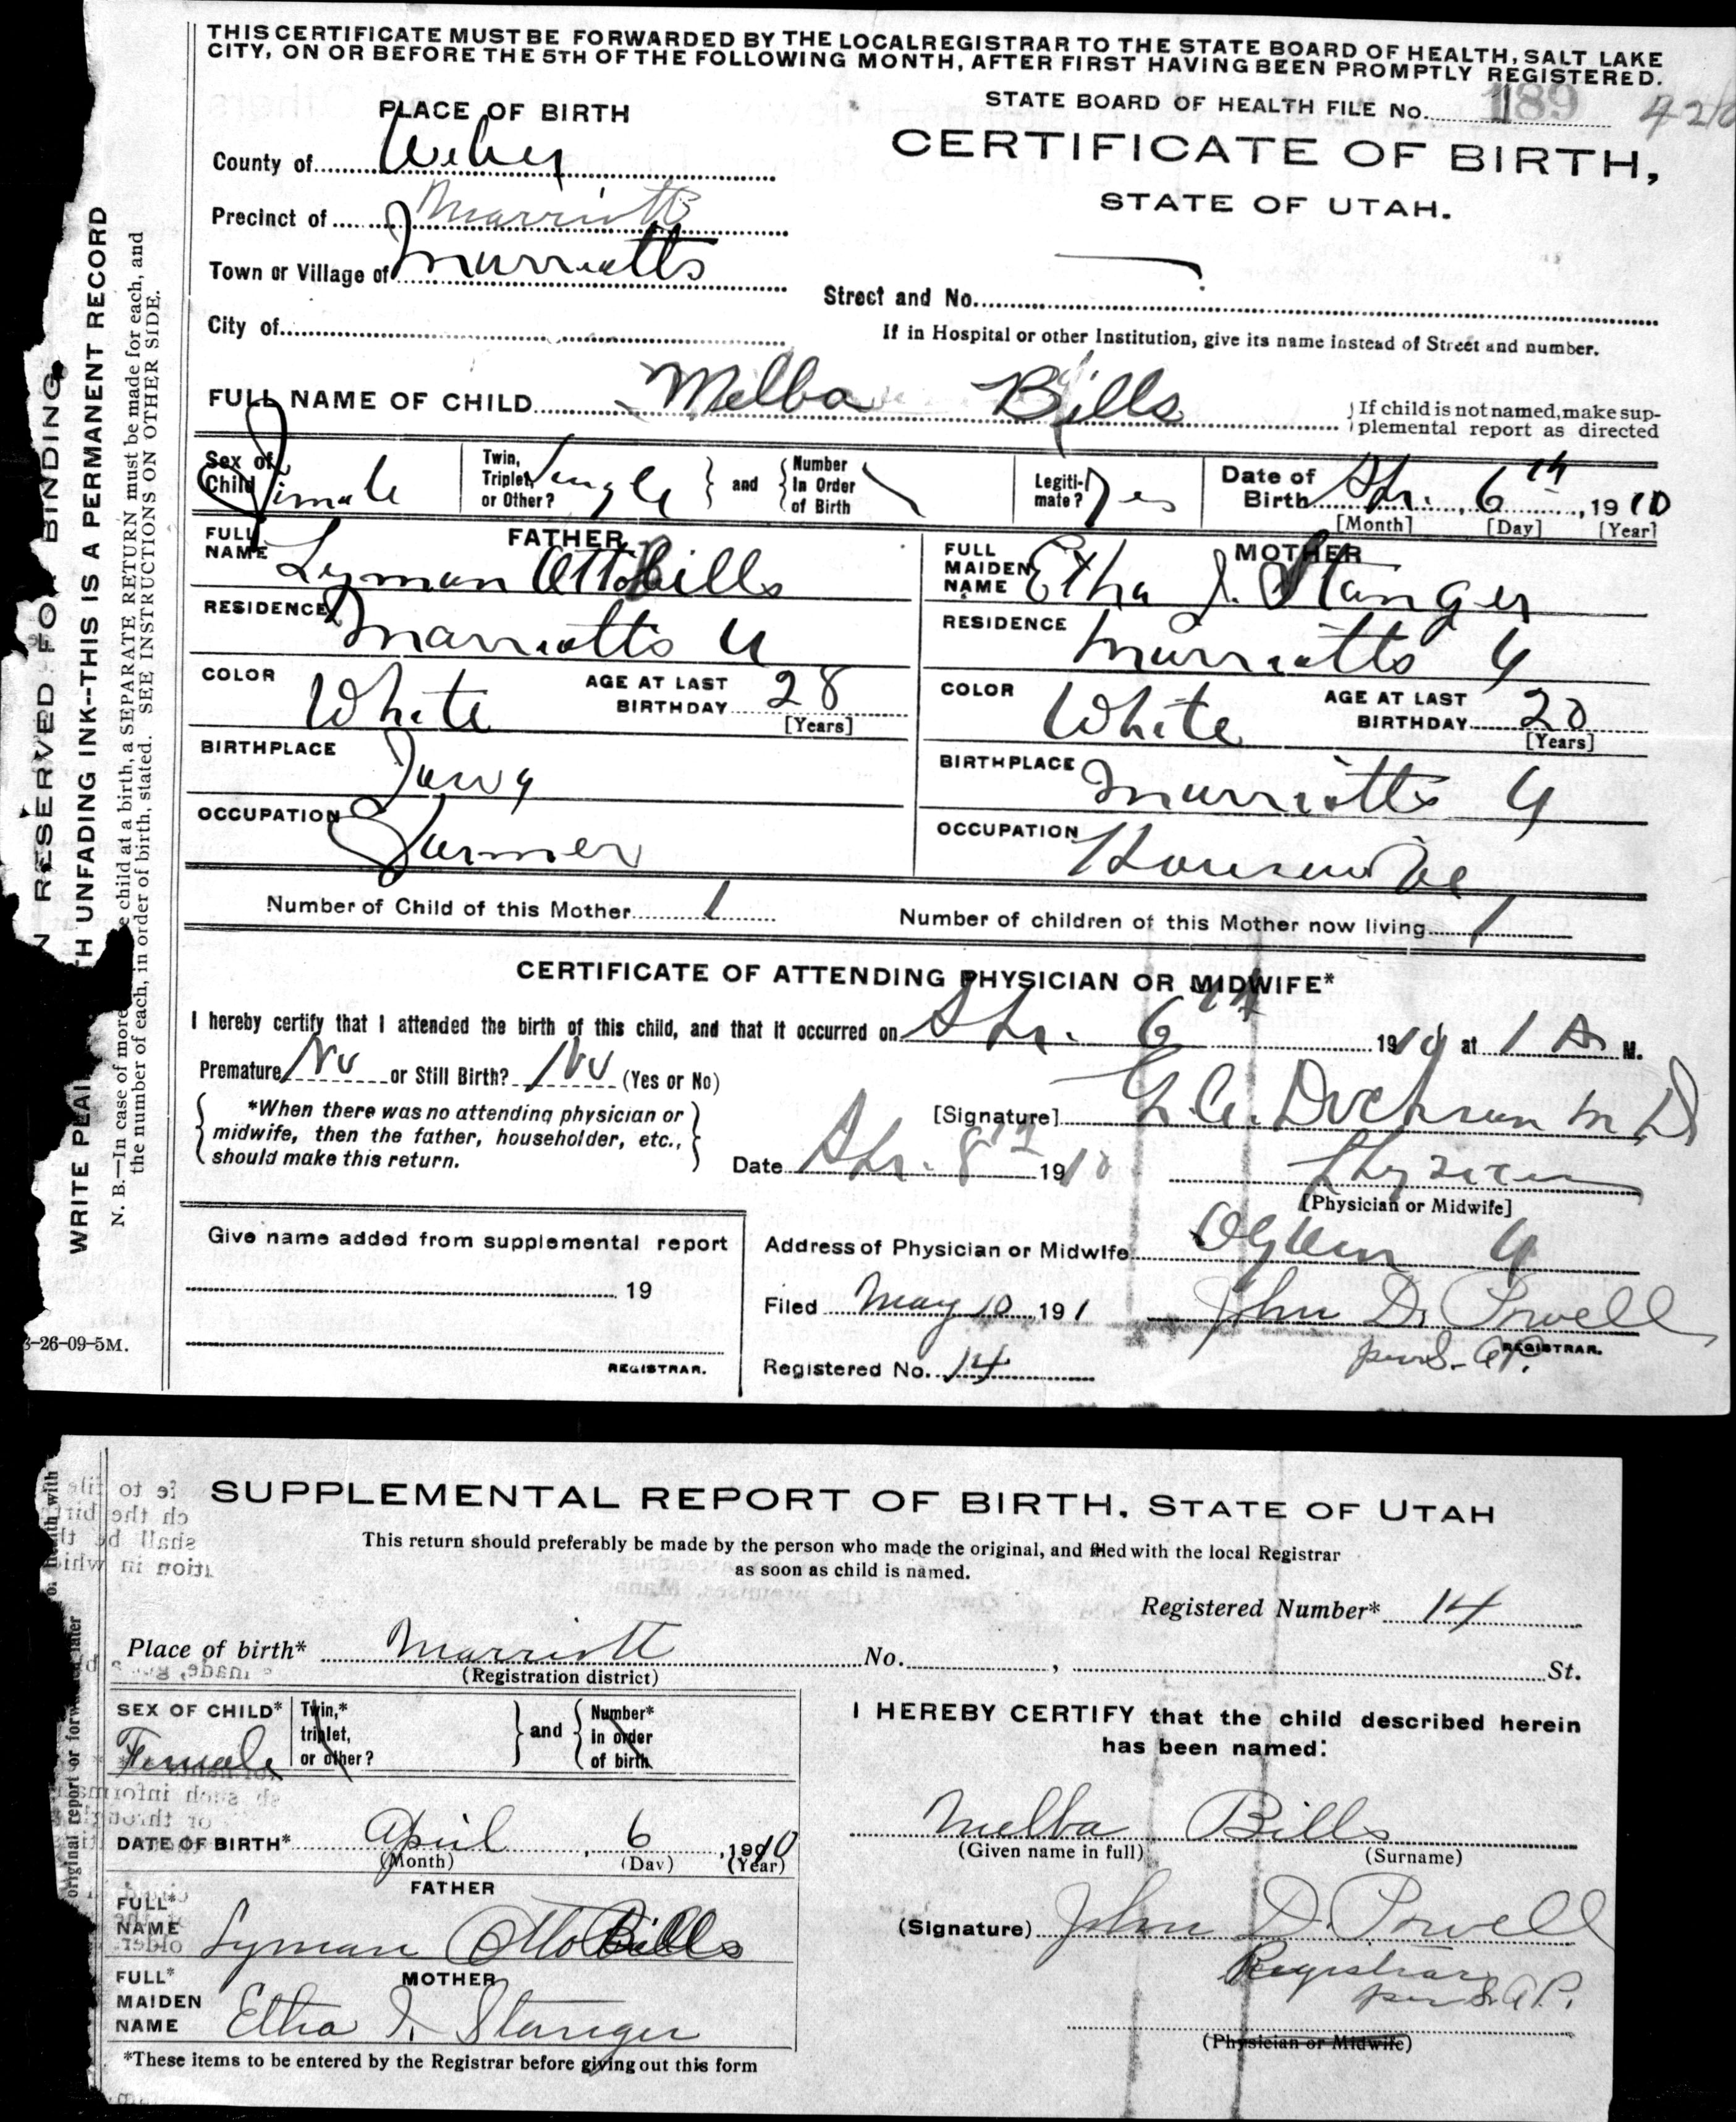 THIS CERTIFICATE MUST BE FORWARDED BY THE LOCAL REGISTRAR TO THE STATE BOARD OF HEALTH, SALT LAKE
CITY, ON OR BEFORE THE 5TH OF THE FOLLOWING MONTH, AFTER FIRST HAVING BEEN PROMPTLY REGISTERED.
STATE BOARD OF HEALTH FILE No. 189
PLACE OF BIRTH
CERTIFICATE OF BIRTH,
STATE OF UTAH.
County of Weber
Precinct of Marriott
Town or Village of Marriotts
Street and No.
City of
If in Hospital or other Institution, give its name instead of Street and number.
FULL NAME OF CHILD Melba Bills
If child is not named, make sup-
plemental report as directed
Sex of Child Female
Twin, Triplet, or Other? Single
and
Number In Order of Birth
Legiti-mate? Yes
Date of Birth Apr. 6th, 1910
[Month] [Day] [Year]
FATHER
FULL NAME Lyman Otto Bills
RESIDENCE Marriotts U
COLOR White
AGE AT LAST BIRTHDAY 28
[Years]
BIRTHPLACE Iowa
OCCUPATION Farmer
MOTHER
FULL MAIDEN NAME Etha I. Stanger
RESIDENCE Marriotts U
COLOR White
AGE AT LAST BIRTHDAY 20
[Years]
BIRTHPLACE Marriotts U
OCCUPATION Housewife
Number of Child of this Mother 1
Number of children of this Mother now living 1
CERTIFICATE OF ATTENDING PHYSICIAN OR MIDWIFE*
I hereby certify that I attended the birth of this child, and that it occurred on Apr. 6th 1910 at 1 A M.
Premature No or Still Birth? No (Yes or No)
*When there was no attending physician or
midwife, then the father, householder, etc.,
should make this return.
[Signature] M D
Date Apr. 8th 1910
Physician
[Physician or Midwife]
Give name added from supplemental report
19
REGISTRAR.
Address of Physician or Midwife Ogden U
Filed May 10 191
John D. Powell
REGISTRAR.
per S. A P.
Registered No. 14
3-26-09-5M.
N RESERVED FOR BINDING
WRITE PLAI TH UNFADING INK--THIS IS A PERMANENT RECORD
N. B.—In case of more child at a birth, a SEPARATE RETURN must be made for each, and
the number of each, in order of birth, stated. SEE INSTRUCTIONS ON OTHER SIDE.
SUPPLEMENTAL REPORT OF BIRTH, STATE OF UTAH
This return should preferably be made by the person who made the original, and filed with the local Registrar
as soon as child is named.
Registered Number* 14
Place of birth* Marriott No. , St.
(Registration district)
SEX OF CHILD* Female
Twin,* triplet, or other?
and
Number* in order of birth
DATE OF BIRTH* April, 6, 1910
(Month) (Day) (Year)
FATHER
FULL* NAME Lyman Otto Bills
MOTHER
FULL* MAIDEN NAME Etha I. Stanger
*These items to be entered by the Registrar before giving out this form
I HEREBY CERTIFY that the child described herein
has been named:
Melba Bills
(Given name in full) (Surname)
(Signature) John D. Powell
Registrar
per S. A P.
(Physician or Midwife)
original report or forw later